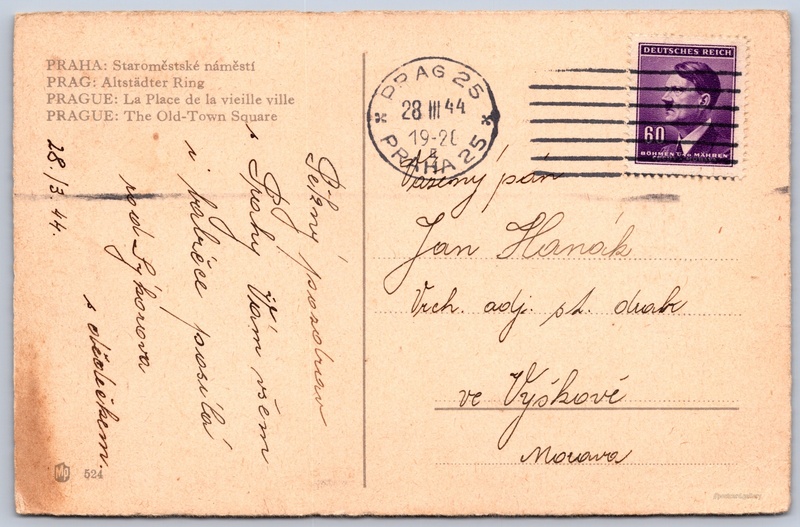 PRAHA: Staroměstské náměstí
PRAG: Altstädter Ring
PRAGUE: La Place de la vieille ville
PRAGUE: The Old-Town Square
28/3.44.
Pěkný pozdrav
s Prahy Vám všem
i babičce posílá
rod. Sýkorova
s dědečkem.
524
PRAG 25
28 III 44
19-20
PRAHA 25
DEUTSCHES REICH
60
BÖHMEN UND MÄHREN
Vážený pán
Jan Hanák
Vrch. adj. st. drah
ve Vyškově
Morava